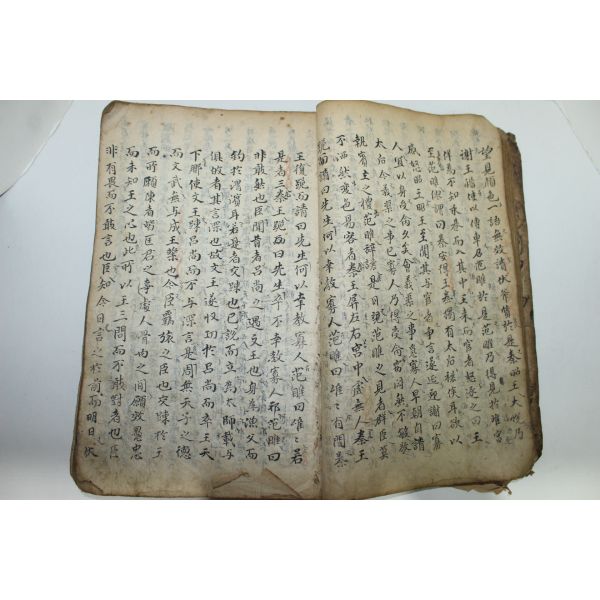 望見顔色一語無效請伏斧質於是秦昭王大悅乃
謝王稽使以傳車召范雎於是范雎乃得見於離宮
佯爲不知永巷而入其中王來而宦者怒逐之曰王
至范雎繆謂曰秦安得王秦獨有太后穰侯耳欲以
感怒昭王昭王至聞其與宦者爭言遂延迎謝曰寡
人宜以身受命久矣會義渠之事急寡人旦暮自請
太后今義渠之事已寡人乃得受命竊閔然不敏敬
執賓主之禮范雎辭讓是日觀范雎之見者群臣莫
不洒然變色易容者秦王屛左右宮中虛無人秦王
跽而請曰先生何以幸教寡人范雎曰唯〻有間秦
王復跽而請曰先生何以幸教寡人范雎曰唯〻若
是者三秦王跽而曰先生卒不幸教寡人邪范雎曰
非敢然也臣聞昔者呂尚之遇文王也身爲漁父而
釣於渭濱耳若是者交疎也已說而立爲太師載与
俱歸者其言深也故文王遂收功於呂尚而卒王天
下鄉使文王疎呂尚而不与深言是周無天子之德
而文武無与成王業也今臣羈旅之臣也交疎於王
而所願陳者皆匡君之事處人骨肉之間願效愚忠
而未知王之心也此所以王三問而不敢對者也臣
非有畏而不敢言也臣知今日言之於前而明日伏